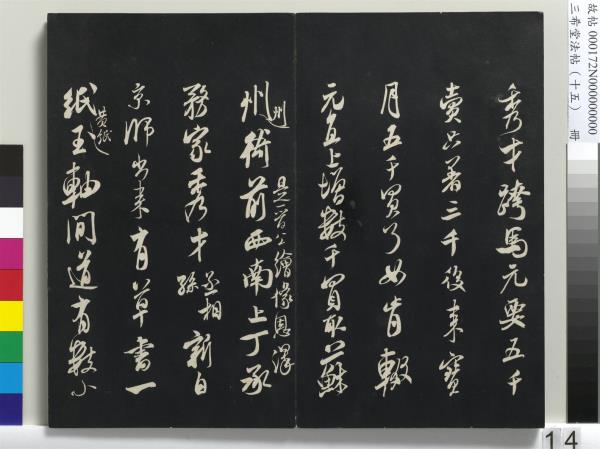 故帖 000172N000000000
三希堂法帖（十五） 冊
秀才跨馬元要五千
賣只著三千後來寶
月五千買了如肯輟
元直上增數千買取蘇
是晉公繪像恩澤
州州衙前西南上丁承
務家秀才丞相孫新自
京師出來有草書一
紙黃紙玉軸間道有數小
14